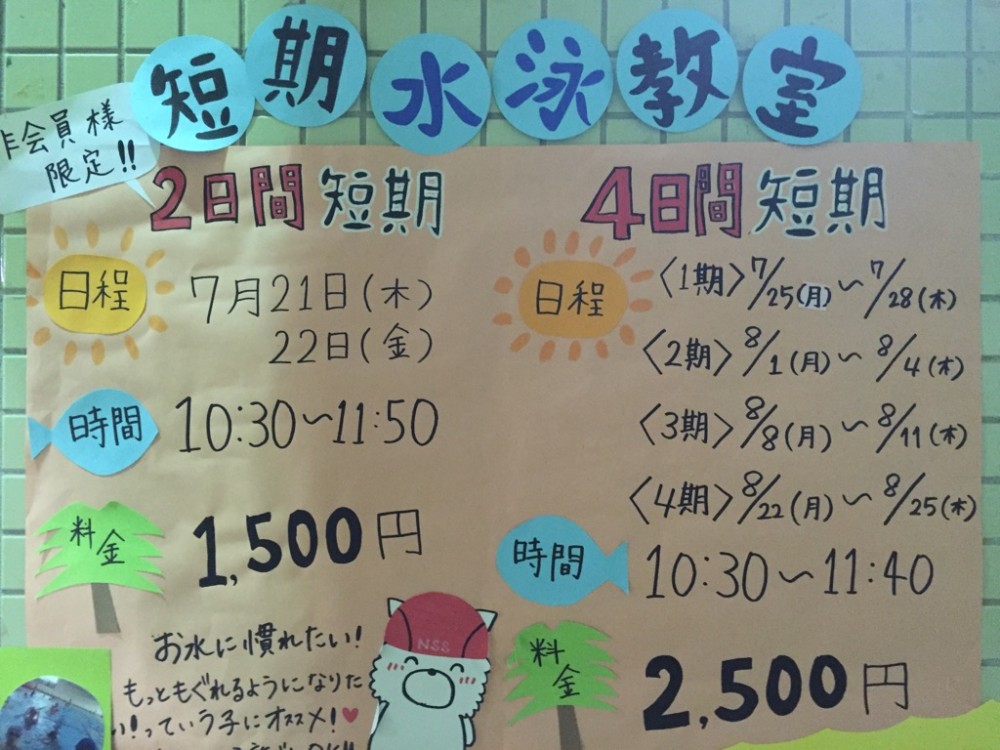 短期水泳教室
非会員様
限定!!
2日間短期
日程
7月21日(木)
22日(金)
時間
10:30〜11:50
料金
1,500円
お水に慣れたい!
もっともぐれるようになりた
い!っていう子にオススメ!♥
NSS
4日間短期
日程
〈1期〉7/25(月)〜7/28(木)
〈2期〉8/1(月)〜8/4(木)
〈3期〉8/8(月)〜8/11(木)
〈4期〉8/22(月)〜8/25(木)
時間
10:30〜11:40
料金
2,500円